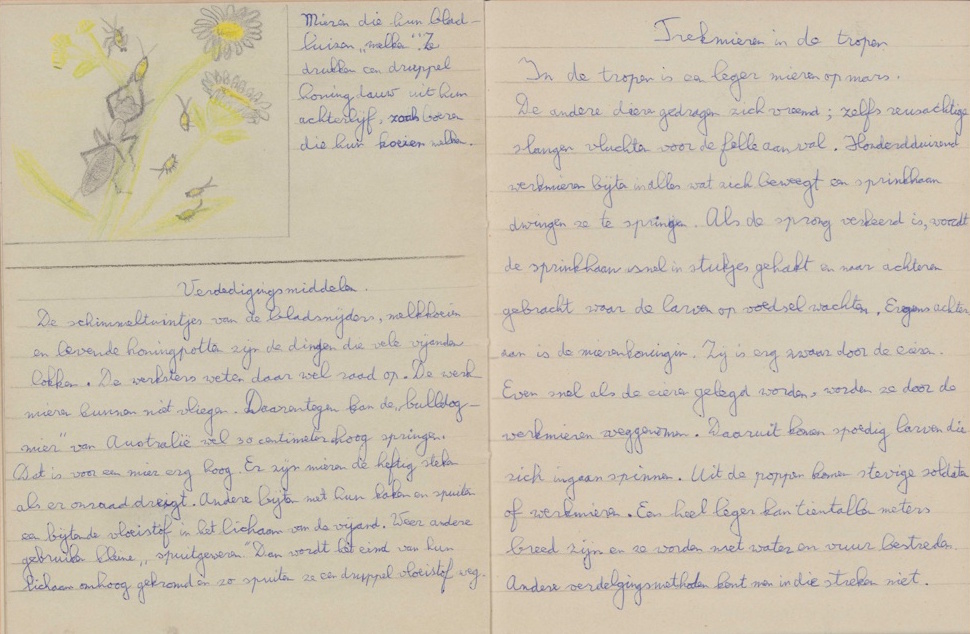 Mieren die hun blad-
luizen „melken". Ze
drukken een druppel
honingdauw uit hun
achterlijf, zoals boeren
die hun koeien melken.
Verdedigingsmiddelen.
De schimmeltuintjes van de bladsnijders, melkkoeien
en levende honingpotten zijn de dingen die vele vijanden
lokken. De werksters weten daar wel raad op. De werk
mieren kunnen niet vliegen. Daarentegen kan de „bulldog-
mier" van Australië wel 30 centimeter hoog springen.
Dat is voor een mier erg hoog. Er zijn mieren die heftig steken
als er onraad dreigt. Andere bijten met hun kaken en spuiten
een bijtende vloeistof in het lichaam van de vijand. Weer andere
gebruiken kleine „spuitgeweren" Dan wordt het eind van hun
lichaam omhoog gekromd en zo spuiten ze een druppel vloeistof weg.
Trekmieren in de tropen
In de tropen is een leger mieren op mars.
De andere dieren gedragen zich vreemd; zelfs reusachtige
slangen vluchten voor de felle aanval. Honderdduizend
werkmieren bijten in alles wat zich beweegt een sprinkhaan
dwingen ze te springen. Als de sprong verkeerd is, wordt
de sprinkhaan snel in stukjes gehakt en naar achteren
gebracht waar de larven op voedsel wachten. Ergens achter
aan is de mierenkoningin. Zij is erg zwaar door de eieren.
Even snel als de eieren gelegd worden, worden ze door de
werkmieren weggenomen. Daaruit komen spoedig larven die
zich ingaan spinnen. Uit de poppen komen stevige soldaten
of werkmieren. Een heel leger kan tientallen meters
breed zijn en ze worden met water en vuur bestreden.
Andere verdelgingsmethoden kent men in die streken niet.